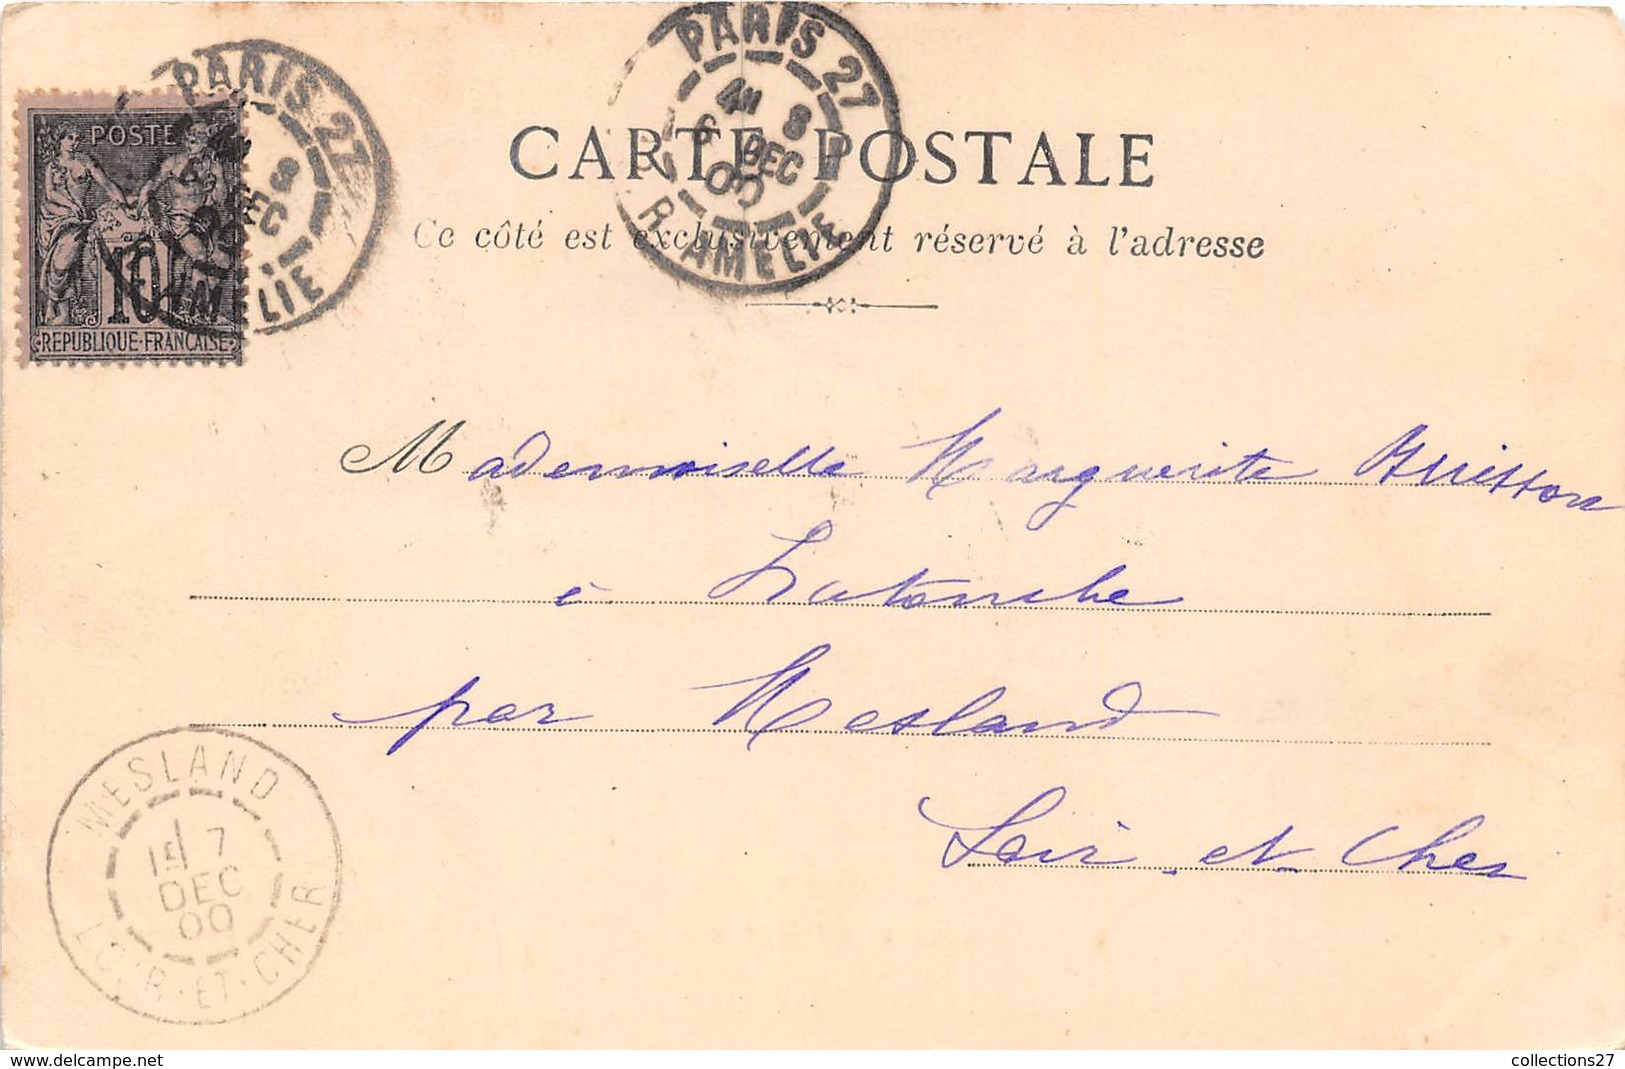 POSTE
10
REPUBLIQUE·FRANÇAISE
PARIS 27
8
DEC
AMELIE
PARIS 27
4 8
6 DEC
00
R. AMELIE
CARTE POSTALE
Ce côté est exclusivement réservé à l'adresse
Mademoiselle Marguerite
à Latouche
par Mesland
Loir et Cher
MESLAND
7
DEC
00
LOIR-ET-CHER
www.delcampe.net
collections27